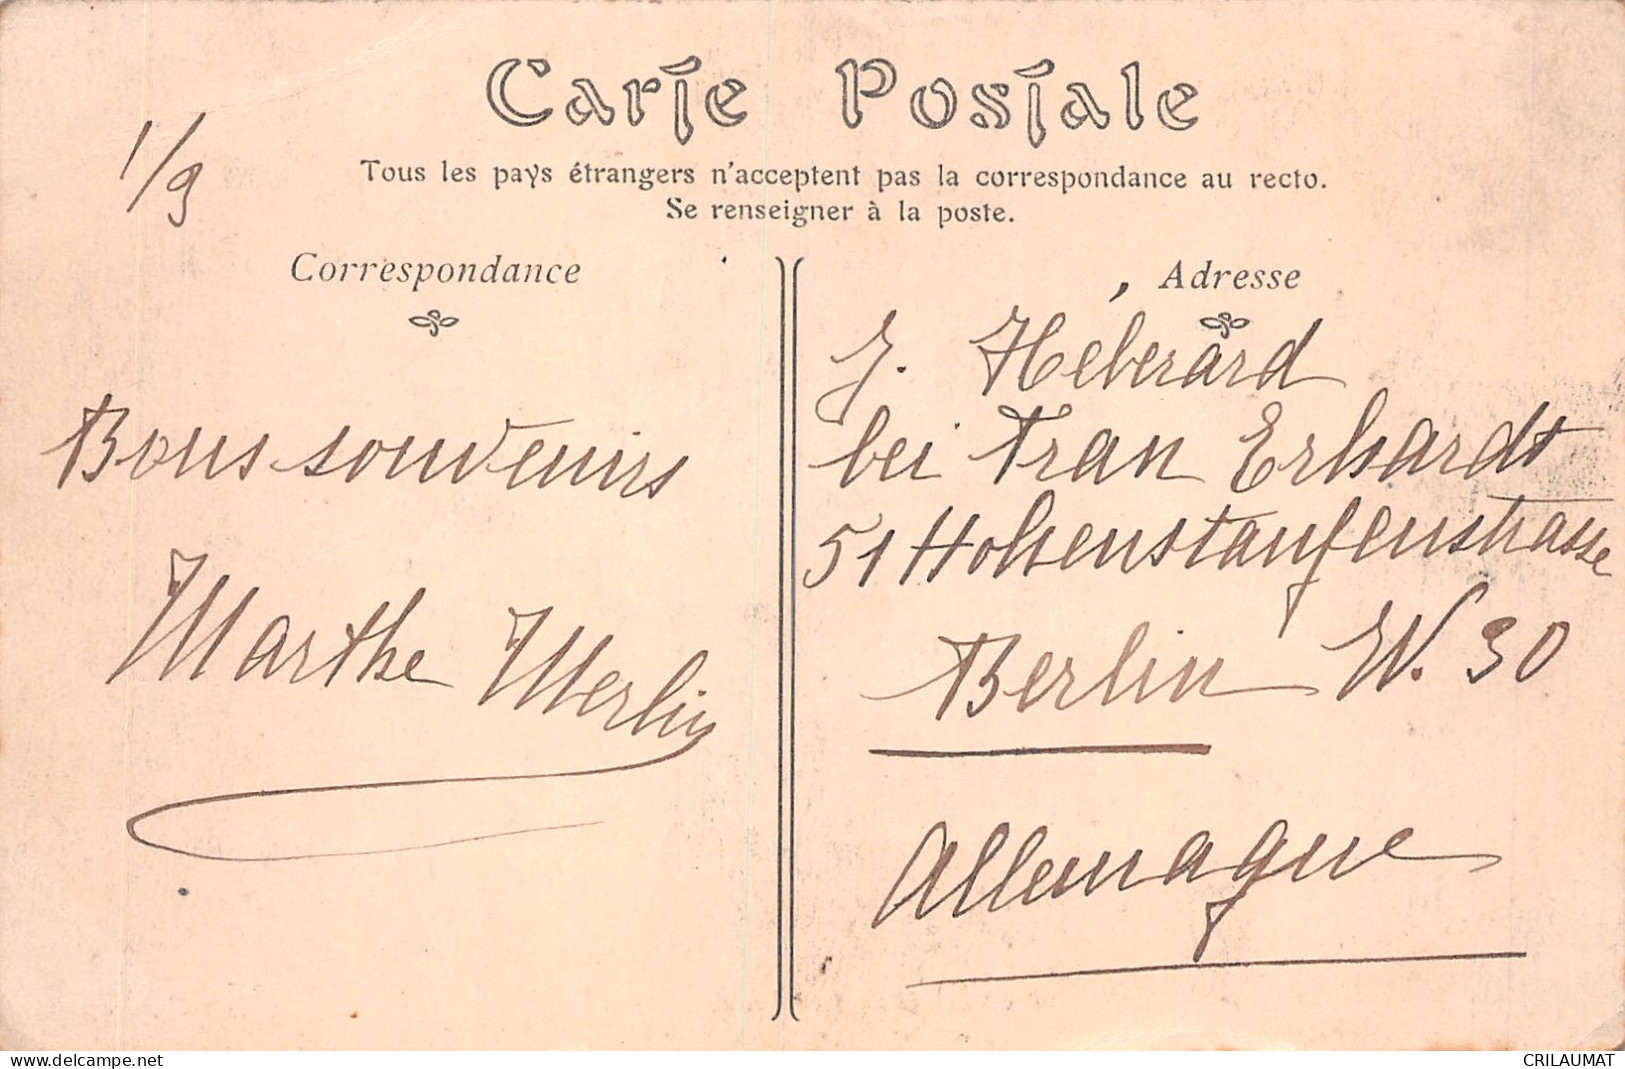 Carte Postale
1/9
Tous les pays étrangers n'acceptent pas la correspondance au recto.
Se renseigner à la poste.
Correspondance
Bons souvenirs
Marthe Merlin
Adresse
J. Héberard
bei Fran Erhardt
51 Hohenstaufenstrasse
Berlin W. 30
Allemagne
www.delcampe.net
CRILAUMAT